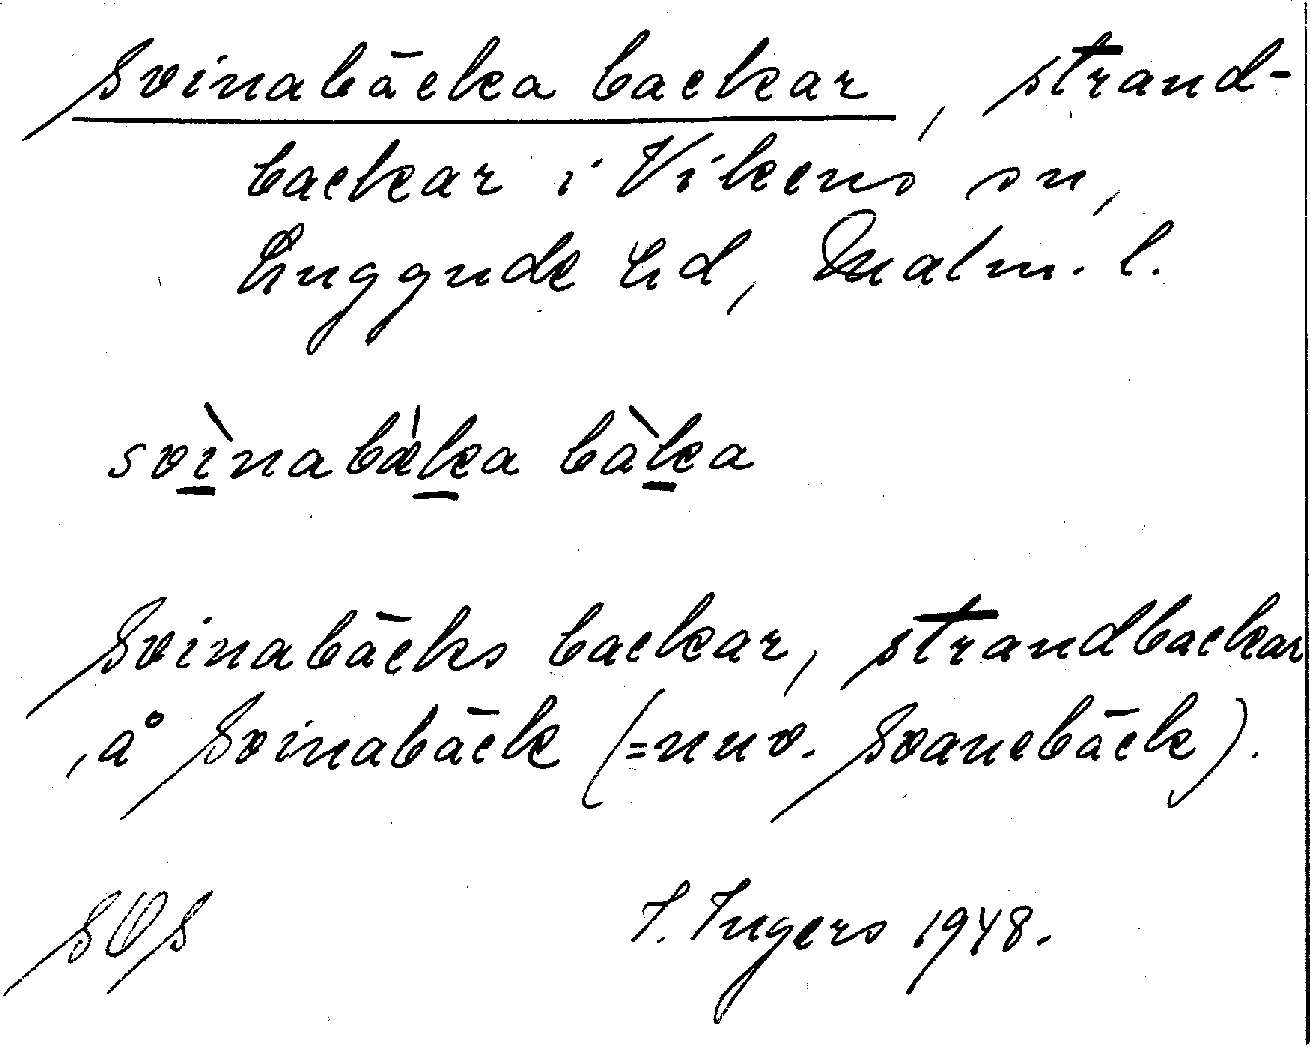 Svinabäcka backar, strand-
backar i Vikens sn,
Luggude hd, Malm. l.
svìnabæ̀ka bàka
Svinabäcks backar, strandbackar
å Svinabäck (=nuv. Svanebäck).
SOS I. Ingers 1948.